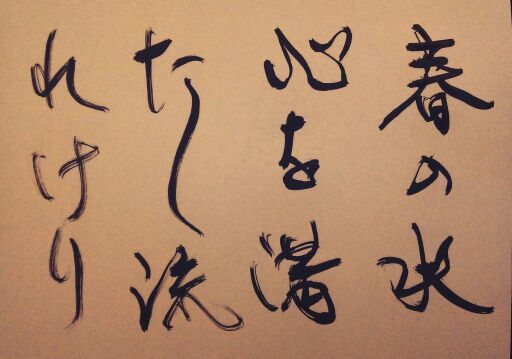 春の水
心を満
たし流
れけり